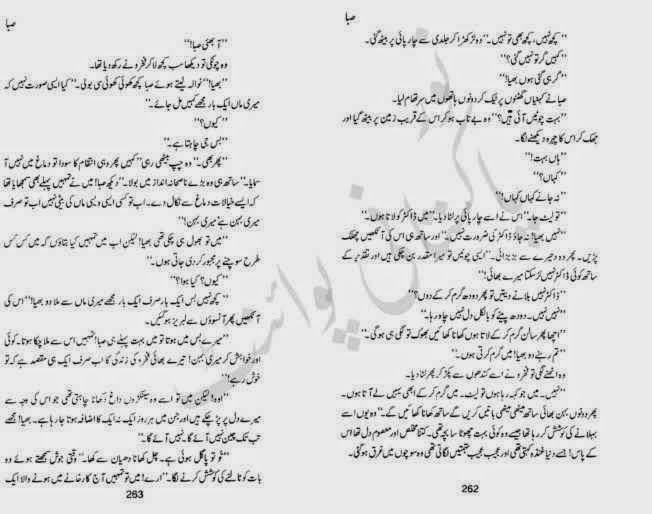 صبا
’’کچھ نہیں، کچھ بھی تو نہیں۔‘‘ وہ لڑکھڑا کر جلدی سے چارپائی پر بیٹھ گئی۔
’’کہیں گر تو نہیں گئی؟‘‘
’’گر ہی گئی ہوں بھیا!‘‘
صبا نے کہنیاں گھٹنوں پر ٹیک کر دونوں ہاتھوں میں سر تھام لیا۔
’’بہت چوٹیں آئی ہیں؟‘‘ وہ بے تاب ہو کر اس کے قریب زمین پر بیٹھ گیا اور
جھک کر اس کا چہرہ دیکھنے لگا۔
’’ہاں بہت!‘‘
’’کہاں؟‘‘
’’نہ جانے کہاں کہاں!‘‘
’’تو لیٹ جا۔‘‘ اس نے اسے چارپائی پر لٹا دیا۔ ’’میں ڈاکٹر کو لاتا ہوں۔‘‘
’’نہیں بھیا! نہ جاؤ ڈاکٹر کی ضرورت نہیں۔‘‘ اور ساتھ ہی اس کی آنکھیں چھلک
پڑیں۔ پھر وہ دھیرے سے بڑبڑائی۔ ’’ایسی چوٹیں تو میرا مقدر بن چکی ہیں اور تقدیر کے
ساتھ کوئی ڈاکٹر نہیں لڑ سکتا میرے بھائی!‘‘
’’ڈاکٹر نہیں بلانے دیتیں تو پھر دودھ گرم کر کے دوں؟‘‘
’’نہیں نہیں۔ دودھ پینے کو بالکل دل نہیں چاہ رہا۔‘‘
’’اچھا پھر سالن گرم کر کے لاتا ہوں کھانا کھائیں بھوک تو لگی ہی ہوگی۔‘‘
’’تم رہنے دو بھیا! میں گرم کرتی ہوں۔‘‘
وہ اٹھنے لگی تو فخرو نے اسے کندھوں سے پکڑ کر پھر لٹا دیا۔
’’نہیں۔ میں جو کہہ رہا ہوں تو لیٹ۔ میں گرم کر کے ابھی یہیں لے آتا ہوں۔
پھر دونوں بہن بھائی ساتھ میٹھی میٹھی باتیں کریں گے ساتھ کھانا کھائیں گے۔‘‘ وہ یوں اسے
بہلانے کی کوشش کر رہا تھا جیسے وہ کوئی بہت چھوٹا سا بچہ تھی۔ کتنا مخلص اور معصوم دل تھا اس
کے پاس! جسے دنیا غنڈہ کہتی تھی اور عجیب عجیب تہمتیں لگاتی تھی وہ سوچوں میں غرق ہو گئی۔
262
صبا
’’آ بھئی صبا!‘‘
وہ چونکی تو دیکھا سب کچھ لا کر فخرو نے رکھ دیا تھا۔
’’بھیا!‘‘ نوالہ لیتے ہوئے صبا کچھ کھوئی کھوئی سی بولی۔ ’’کیا ایسی صورت نہیں کہ
میری ماں ایک بار مجھے کہیں مل جائے۔‘‘
’’کیوں؟‘‘
’’بس جی چاہتا ہے۔‘‘
’’پھر بھی۔‘‘ وہ چپ بیٹھی رہی ’’کہیں پھر وہی انتقام کا سودا تو دماغ میں نہیں آ
سمایا۔‘‘ ساتھ ہی وہ بڑے ناصحانہ انداز میں بولا۔ ’’دیکھ صبا! میں نے تمہیں پہلے بھی سمجھایا تھا
کہ ایسے خیالات دماغ سے نکال دے۔ اب تو کسی ایسی ویسی ماں کی بیٹی نہیں اب تو صرف
میری بہن ہے میری بہن!‘‘
’’میں تو بھول ہی چکی تھی بھیا! لیکن اب میں تمہیں کیا بتاؤں کہ میں کس کس
طرح سوچنے پر مجبور کر دی جاتی ہوں۔‘‘
’’کیوں؟ کیا ہوا؟‘‘
’’کچھ نہیں بس ایک بار صرف ایک بار مجھے میری ماں سے ملا دو بھیا!‘‘ اس کی
آنکھیں پھر آنسوؤں سے لبریز ہو گئیں۔
’’میرے بس میں ہوتا تو میں بہت پہلے ہی صبا! تمہیں اس سے ملا چکا ہوتا۔ کوئی
اور خواہش کر میری بہن! تیرے بھائی فخرو کی زندگی کا اب صرف ایک ہی مقصد ہے کہ تو
خوش رہے!‘‘
’’اوہ! لیکن میں تو اسے وہ سینکڑوں داغ دکھانا چاہتی تھی جو اس کی وجہ سے
میرے دل پر پڑ چکے ہیں اور جن میں ہر روز ایک نہ ایک کا اضافہ ہوتا جا رہا ہے۔ بھیا! مجھے
تب تک چین نہیں آئے گا۔ نہیں آئے گا۔‘‘
’’تُو تو پاگل ہوئی ہے۔ چل کھانا دھیان سے کھا۔‘‘ وقتی جوش سمجھتے ہوئے وہ
بات کو ٹالنے کی کوشش کرنے لگا۔ ’’ارے! میں تو تمہیں آج کارخانے میں ہونے والا ایک
263
پاکستانی پوائنٹ